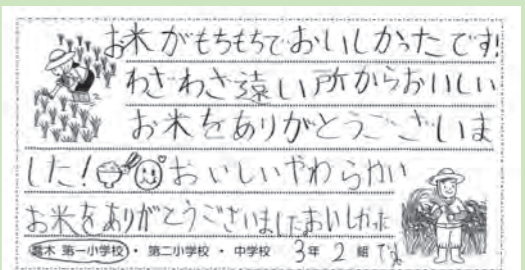 お米がもちもちでおいしかったです!
わざわざ遠い所からおいしい
お米をありがとうございま
した!おいしいやわらかい
お米をありがとうございましたおいしかった
第一小学校・第二小学校・中学校 3年 2組 です